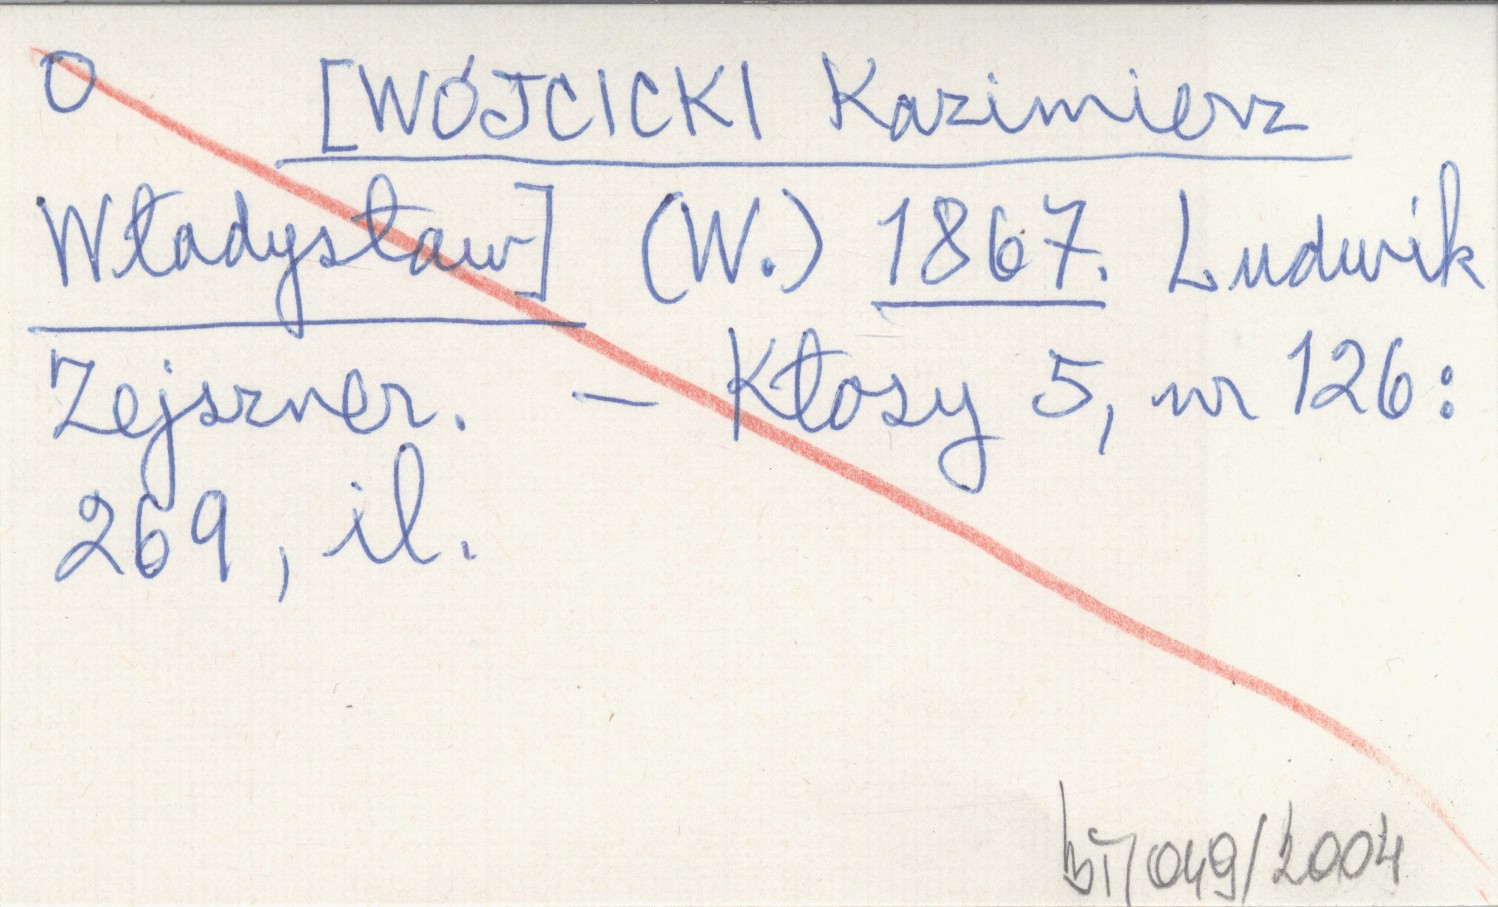 O [WÓJCICKI Kazimierz
Władysław] (W.) 1867. Ludwik
Zejszner. – Kłosy 5, nr 126:
269, il.
049/2004